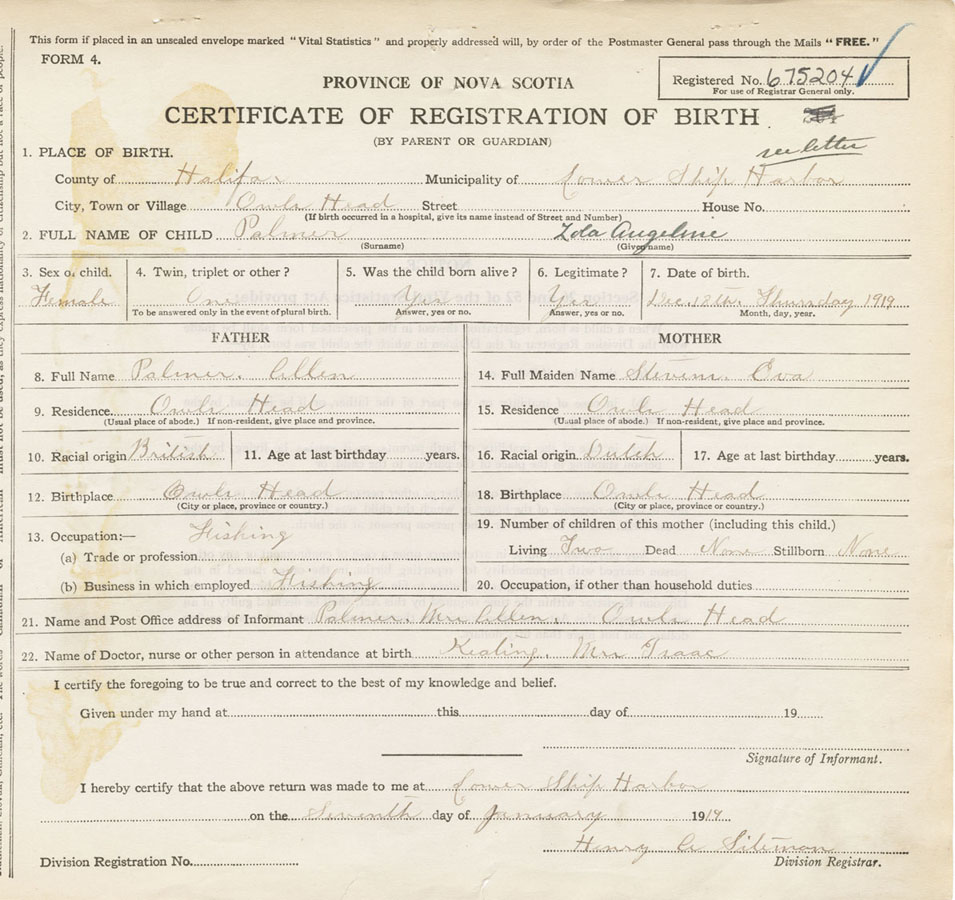 This form if placed in an unsealed envelope marked "Vital Statistics" and properly addressed will, by order of the Postmaster General pass through the Mails "FREE."
FORM 4.
PROVINCE OF NOVA SCOTIA
Registered No. 675204
For use of Registrar General only.
CERTIFICATE OF REGISTRATION OF BIRTH
(BY PARENT OR GUARDIAN)
see letter
1. PLACE OF BIRTH.
County of Halifax Municipality of Lower Ship Harbor
City, Town or Village Owls Head Street House No.
(If birth occurred in a hospital, give its name instead of Street and Number)
2. FULL NAME OF CHILD Palmer Zola Angeline
(Surname) (Given name)
3. Sex of child. 4. Twin, triplet or other? 5. Was the child born alive? 6. Legitimate? 7. Date of birth.
Female One Yes Yes Dec. 18th. Thursday 1919
To be answered only in the event of plural birth. Answer, yes or no. Answer, yes or no. Month, day, year.
FATHER MOTHER
8. Full Name Palmer. Allen 14. Full Maiden Name Stevens. Eva
9. Residence Owls Head 15. Residence Owls Head
(Usual place of abode.) If non-resident, give place and province. (Usual place of abode.) If non-resident, give place and province.
10. Racial origin British 11. Age at last birthday years. 16. Racial origin Dutch 17. Age at last birthday years.
12. Birthplace Owls Head 18. Birthplace Owls Head
(City or place, province or country.) (City or place, province or country.)
13. Occupation:— Fishing 19. Number of children of this mother (including this child.)
(a) Trade or profession Living Two Dead None Stillborn None
(b) Business in which employed Fishing 20. Occupation, if other than household duties
21. Name and Post Office address of Informant Palmer. Mrs Allen. Owls Head
22. Name of Doctor, nurse or other person in attendance at birth Keating. Mrs Isaac
I certify the foregoing to be true and correct to the best of my knowledge and belief.
Given under my hand at this day of 19
Signature of Informant.
I hereby certify that the above return was made to me at Lower Ship Harbor
on the Seventh day of January 1919
Henry A Siteman
Division Registration No. Division Registrar.